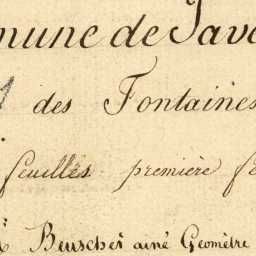 mune de Pave
des Fontaines
feuilles première fe
Beuscher ainé Geomètre